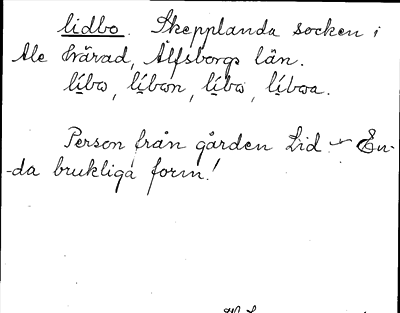 lidbo. Skepplanda socken i
Ale härad, Älfsborgs län.
líbo, líbon, líbo, líboa.
Person från gården Lid. - En-
-da brukliga form!